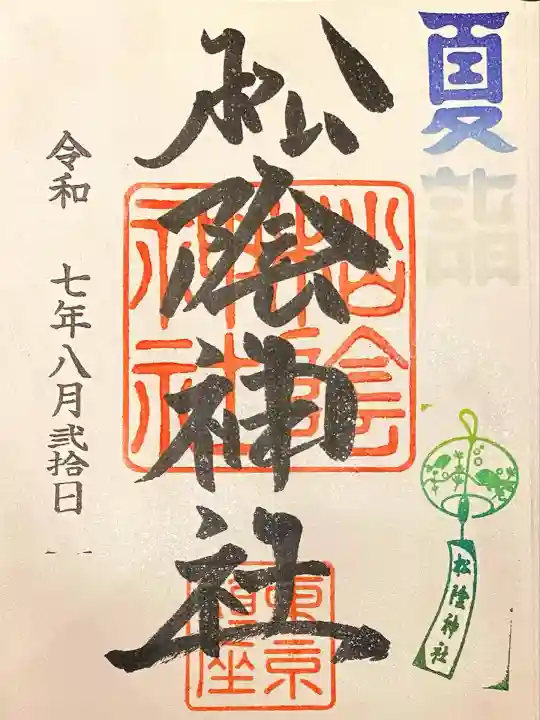 夏詣
松陰神社
松陰神社
東京鎮座
令和 七年八月弐拾日
松陰神社